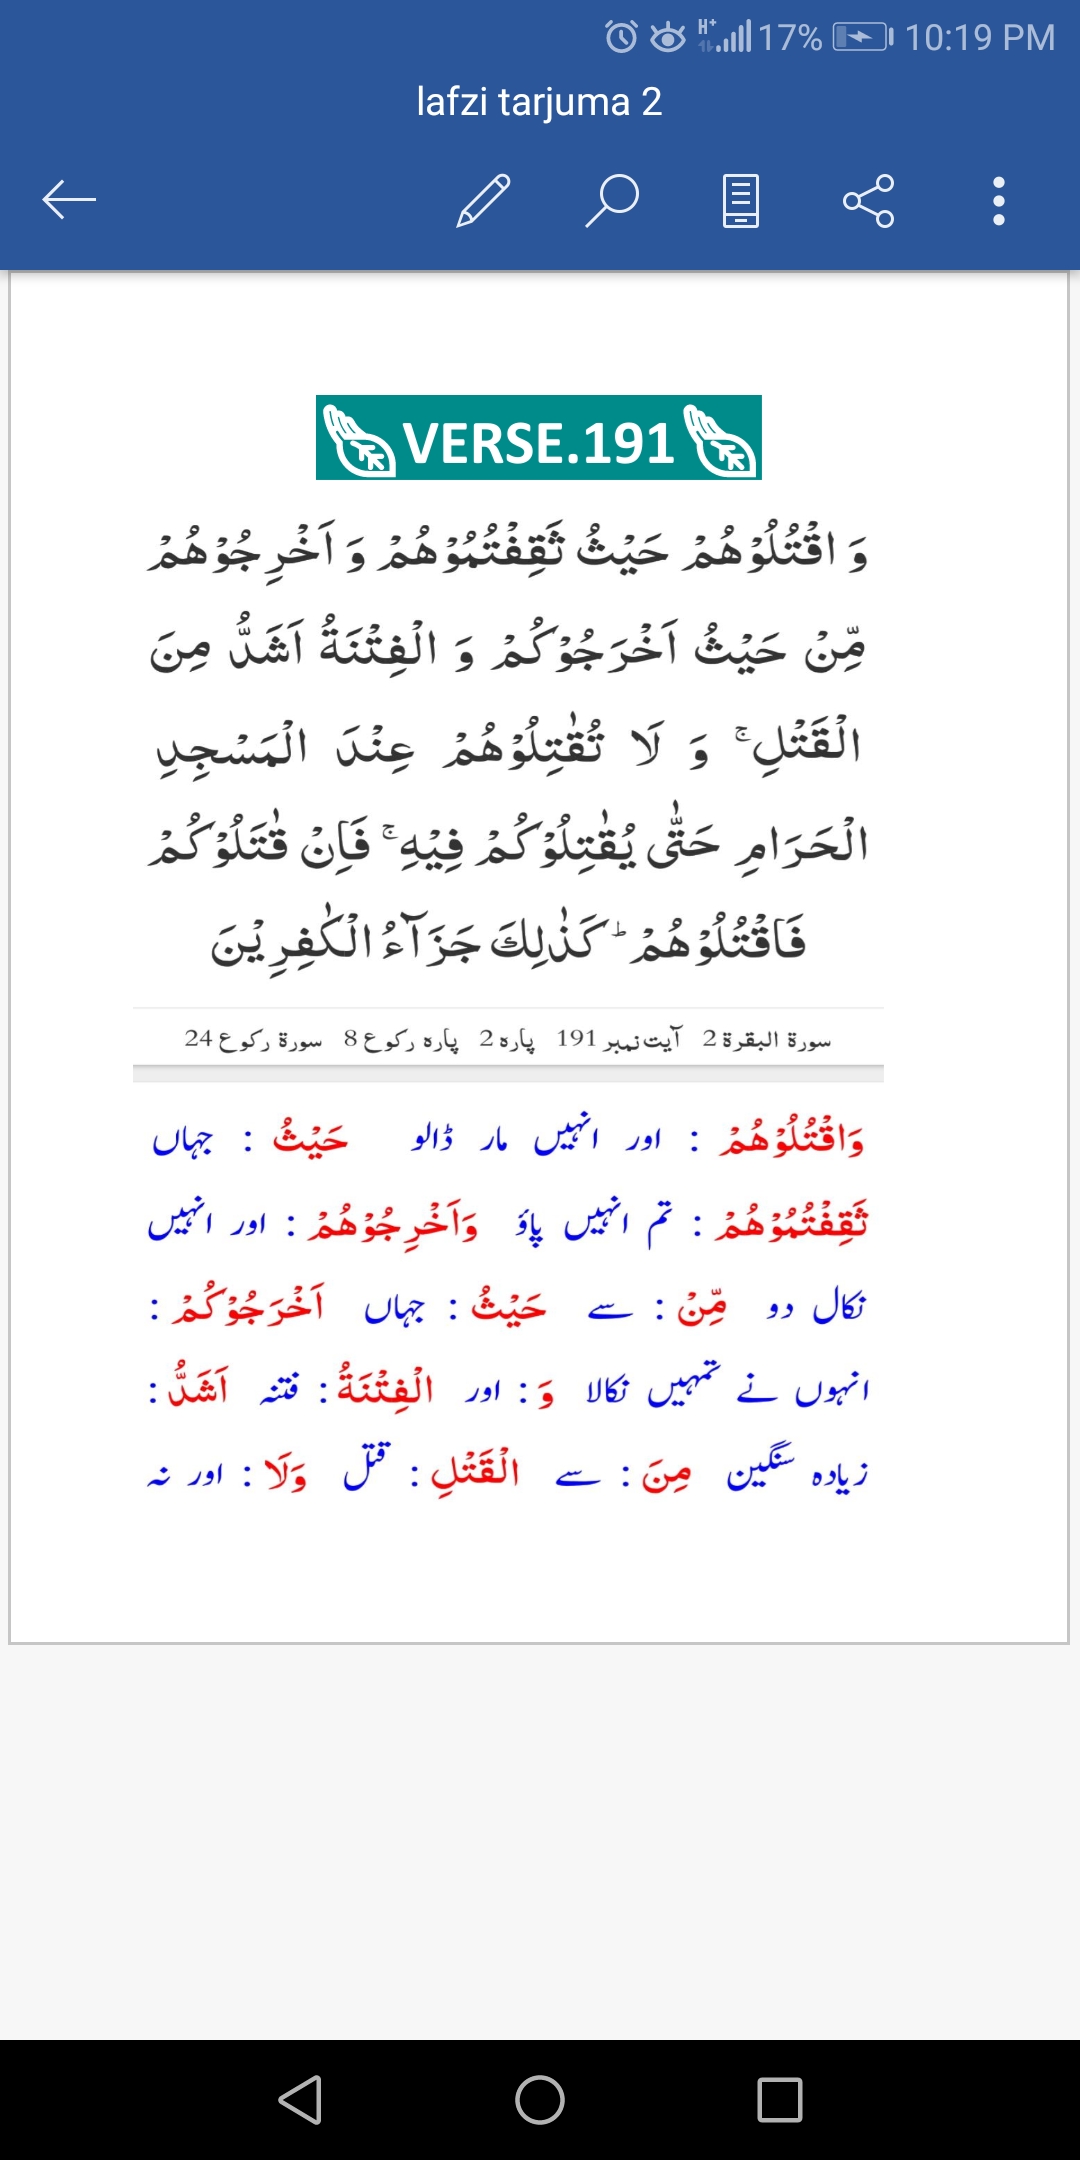 17% 10:19 PM
lafzi tarjuma 2
VERSE.191
وَ اقْتُلُوْهُمْ حَيْثُ ثَقِفْتُمُوْهُمْ وَ اَخْرِجُوْهُمْ
مِّنْ حَيْثُ اَخْرَجُوْكُمْ وَ الْفِتْنَةُ اَشَدُّ مِنَ
الْقَتْلِ ۚ وَ لَا تُقٰتِلُوْهُمْ عِنْدَ الْمَسْجِدِ
الْحَرَامِ حَتّٰى يُقٰتِلُوْكُمْ فِيْهِ ۚ فَاِنْ قٰتَلُوْكُمْ
فَاقْتُلُوْهُمْ ؕ كَذٰلِكَ جَزَآءُ الْكٰفِرِيْنَ
سورۃ البقرۃ 2 آیت نمبر 191 پارہ 2 پارہ رکوع 8 سورۃ رکوع 24
وَاقْتُلُوْهُمْ : اور انہیں مار ڈالو حَيْثُ : جہاں
ثَقِفْتُمُوْهُمْ : تم انہیں پاؤ وَاَخْرِجُوْهُمْ : اور انہیں
نکال دو مِّنْ : سے حَيْثُ : جہاں اَخْرَجُوْكُمْ :
انہوں نے تمہیں نکالا وَ : اور الْفِتْنَةُ : فتنہ اَشَدُّ :
زیادہ سنگین مِنَ : سے الْقَتْلِ : قتل وَلَا : اور نہ